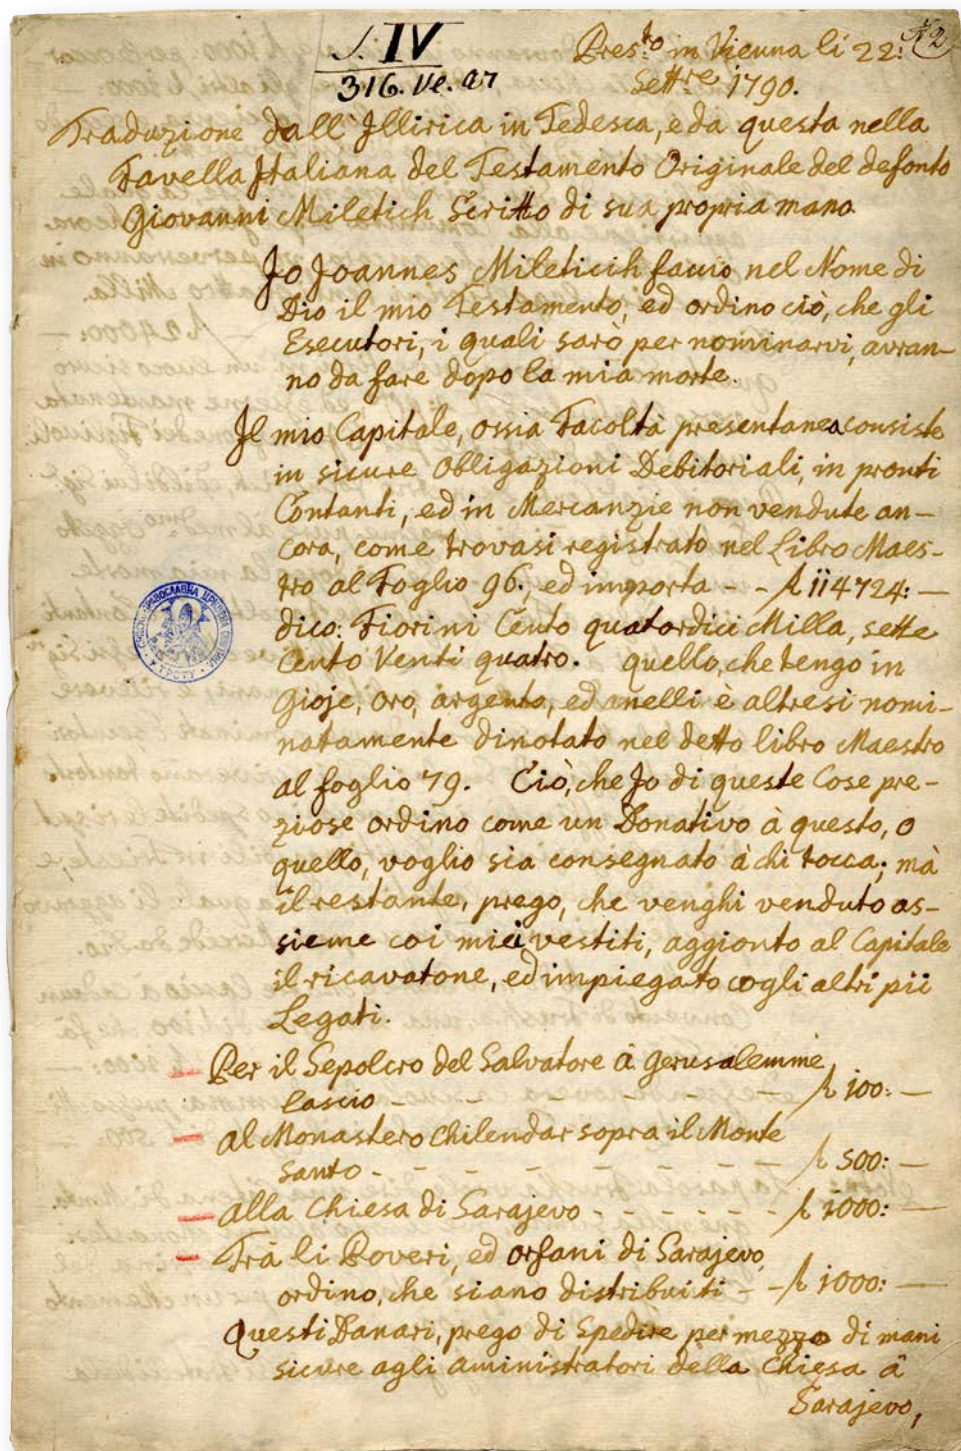 S. IV
316. Ve. a7
№ 2
Pres.to in Vienna li 22:
Settre 1790.
Traduzione dall'Illirica in Tedesca, e da questa nella
Favella Italiana del Testamento Originale del defonto
Giovanni Miletich Scritto di sua propria mano
Io Joannes Mileticih faccio nel Nome di
Dio il mio Testamento, ed ordino ciò, che gli
Esecutori, i quali sarò per nominarvi, avran-
no da fare dopo la mia morte.
Il mio Capitale, ossia Facoltà presentanea consiste
in sicure Obligazioni Debitoriali, in pronti
Contanti, ed in Mercanzie non vendute an-
cora, come trovasi registrato nel Libro Maes-
tro al Foglio 96., ed importa - - f 114724: —
dico: Fiorini Cento quatordici Milla, sette
Cento Venti quatro. quello, che tengo in
Gioje, oro, argento, ed anelli è altresi nomi-
natamente dinotato nel detto libro Maestro
al foglio 79. Ciò, che Io di queste Cose pre-
ziose ordino come un Donativo à questo, o
quello, voglio sia consegnato à chi tocca; mà
il restante, prego, che venghi venduto as-
sieme coi miei vestiti, aggionto al Capitale
il ricavatone, ed impiegato cogli altri pii
Legati.
Per il Sepolcro del Salvatore à Gerusalemme
lascio - - - - - - f 100: —
al Monastero Chilendar sopra il Monte
Santo - - - - - - - f 500: —
alla Chiesa di Sarajevo - - - - - - f 1000: —
Trà li Poveri, ed orfani di Sarajevo,
ordino, che siano distribuiti - - f 1000: —
Questi Danari, prego di Spedire per mezzo di mani
sicure agli aministratori della Chiesa à
Sarajevo,